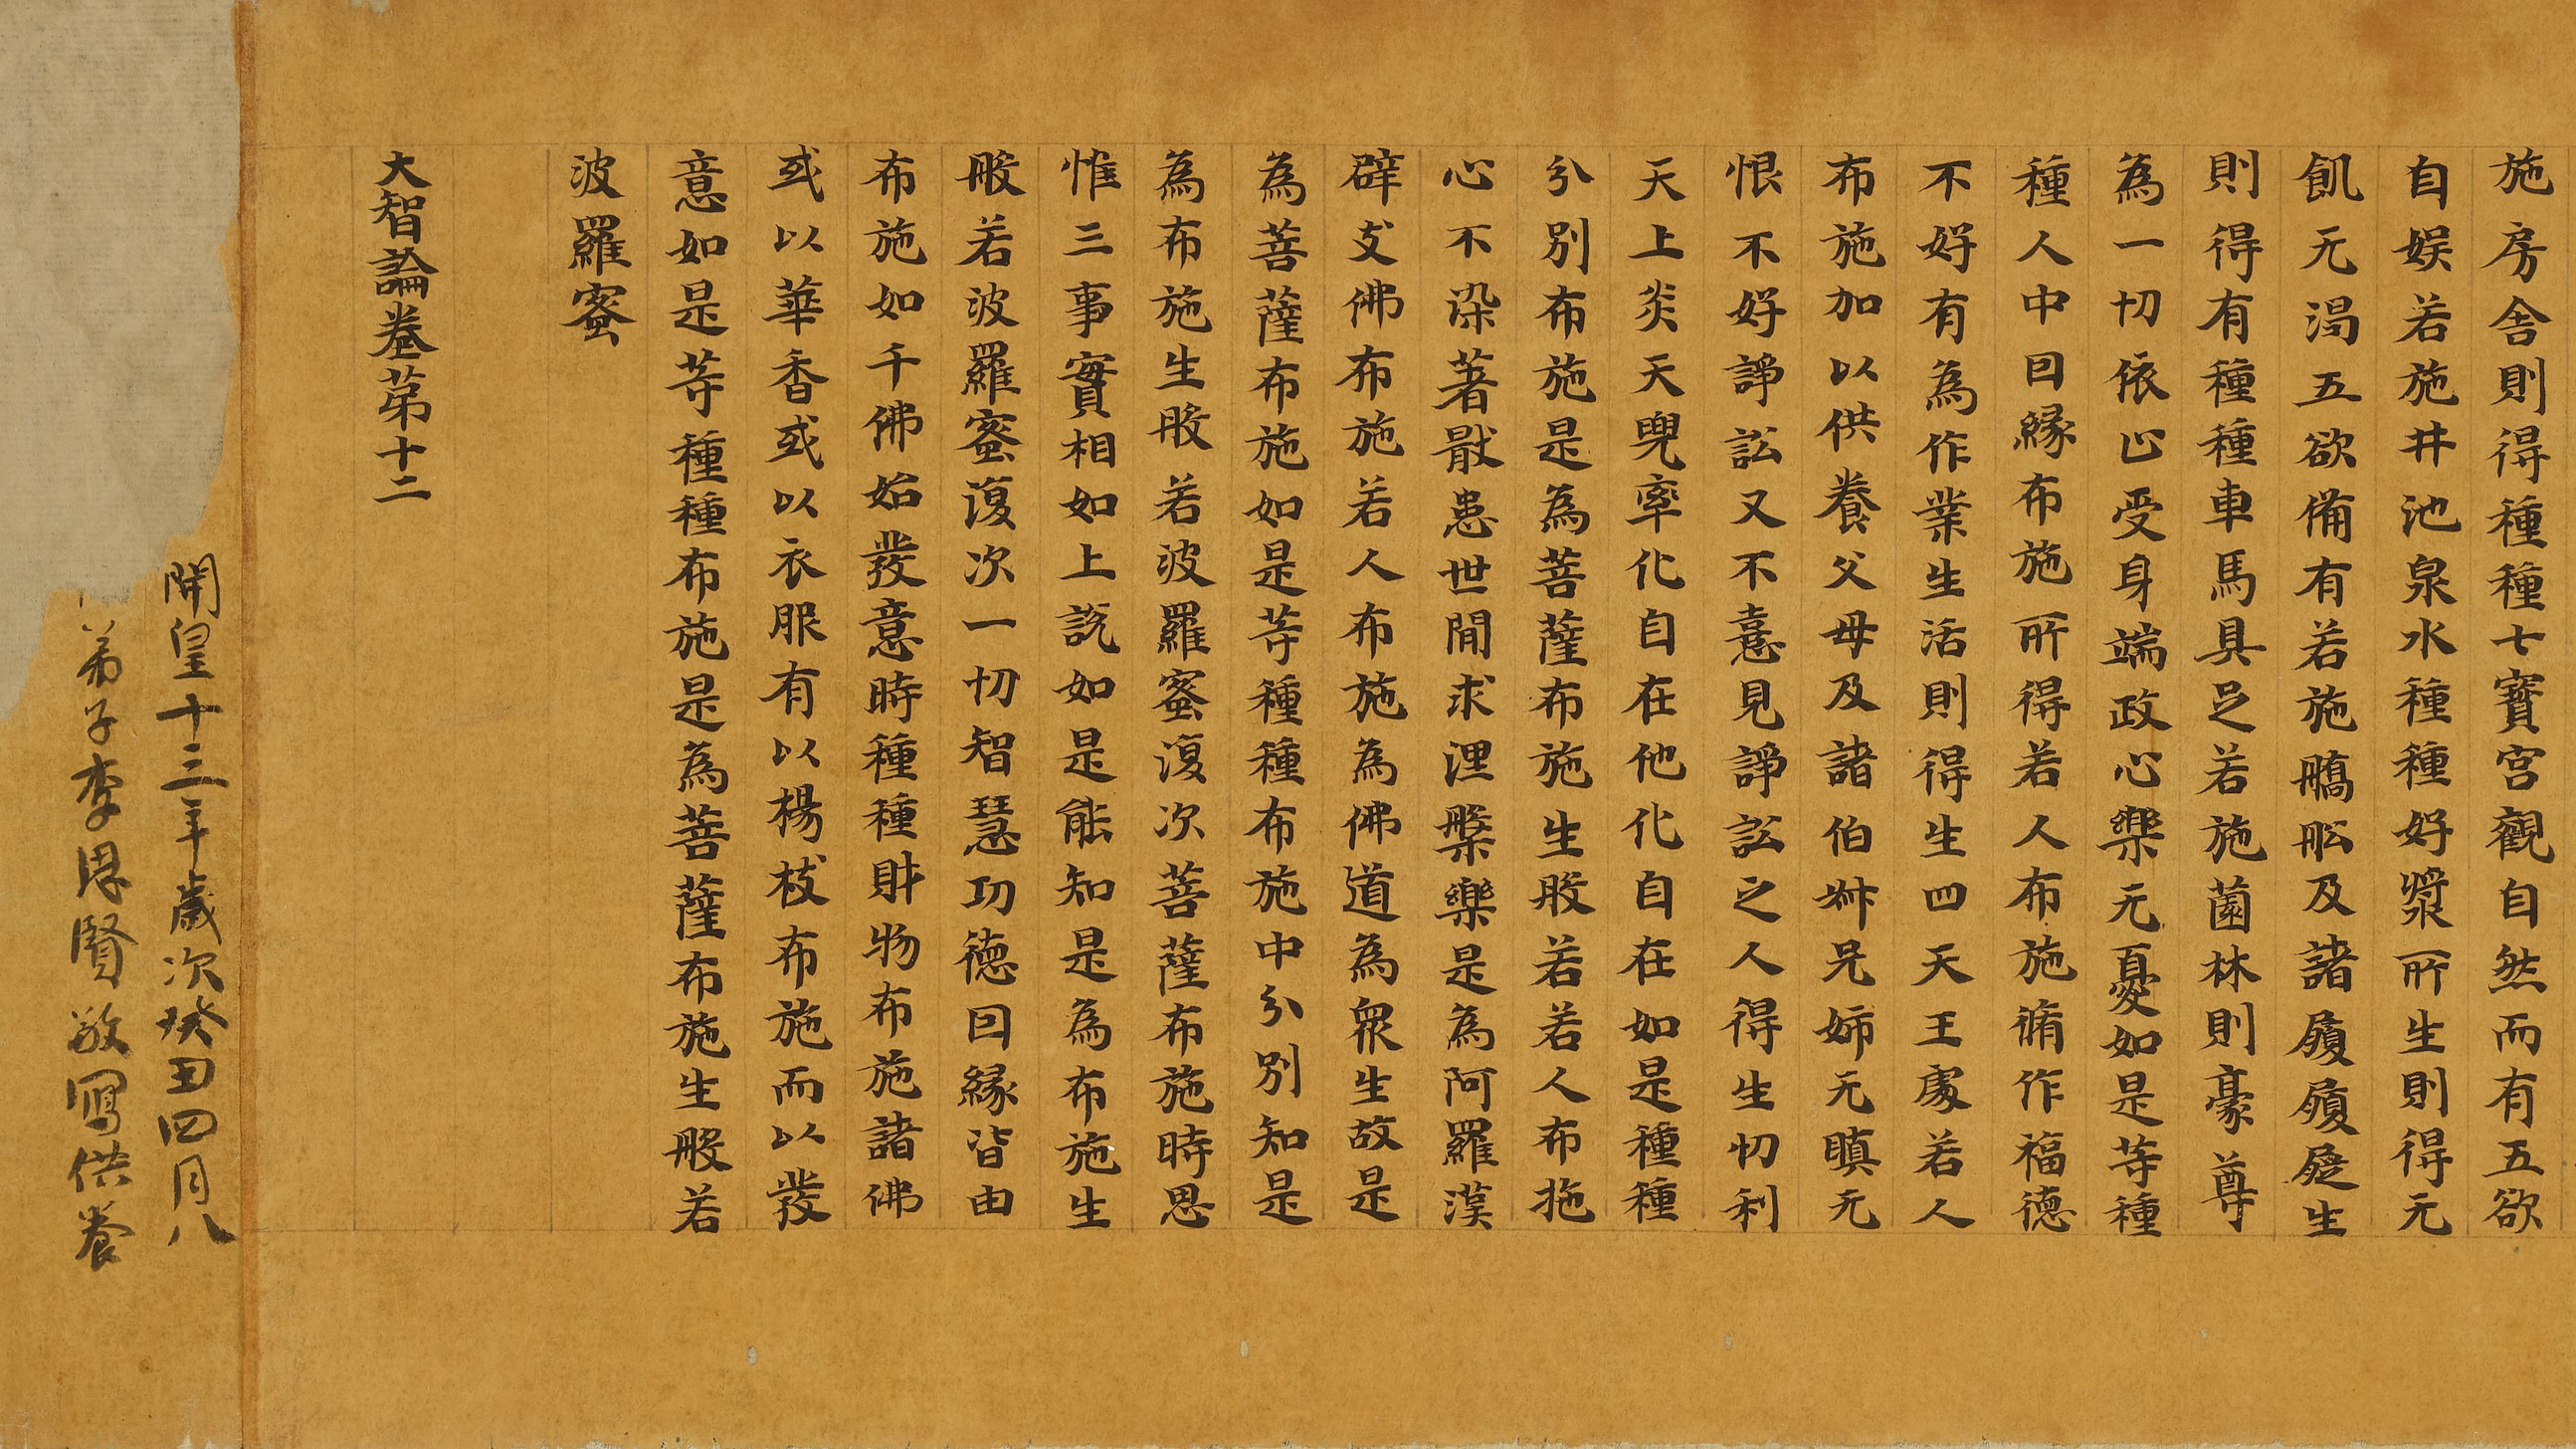 施房舎則得種種七寶宮觀自然而有五欲
自娯若施井池泉水種種好漿所生則得无
飢无渴五欲備有若施𣛴舩及諸履屣生
則得有種種車馬具足若施薗林則豪尊
為一切依止受身端政心樂无憂如是等種
種人中因緣布施所得若人布施脩作福德
不好有為作業生活則得生四天王處若人
布施加以供養父母及諸伯叔兄姉无瞋无
恨不好諍訟又不憙見諍訟之人得生忉利
天上炎天兜率化自在他化自在如是種種
分別布施是為菩薩布施生般若若人布拖
心不染著猒患世間求涅槃樂是為阿羅漢
辟支佛布施若人布施為佛道為衆生故是
為菩薩布施如是等種種布施中分別知是
為布施生般若波羅蜜復次菩薩布施時思
惟三事實相如上說如是能知是為布施生
般若波羅蜜復次一切智慧功德因緣皆由
布施如千佛始發意時種種財物布施諸佛
或以華香或以衣服有以楊枝布施而以發
意如是等種種布施是為菩薩布施生般若
波羅蜜
大智論卷第十二
開皇十三年歲次癸丑四月八
弟子李思賢敬寫供養